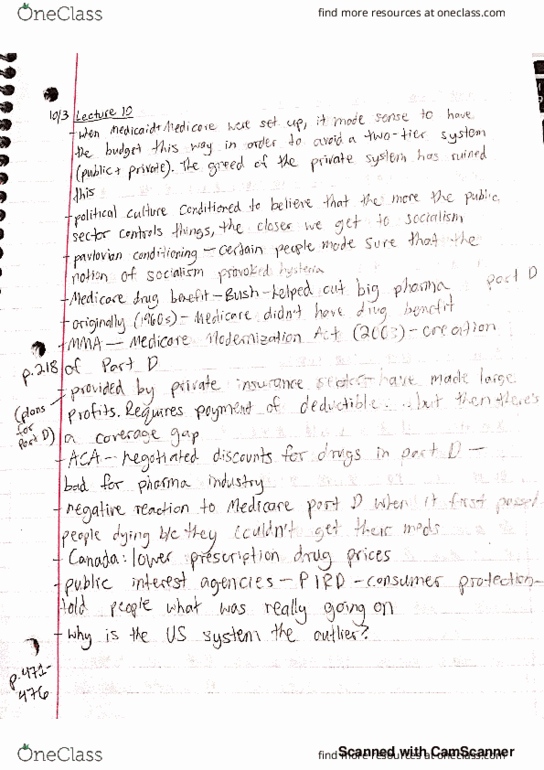 OneClass
find more resources at oneclass.com
10/3 Lecture 10
- when Medicaid + Medicare were set up, it made sense to have
the budget this way in order to avoid a two-tier system
(public + private). The greed of the private system has ruined
this
- political culture conditioned to believe that the more the public
sector controls things, the closer we get to socialism
- pavlovian conditioning - certain people made sure that the
notion of socialism provoked hysteria
- Medicare drug benefit - Bush - helped out big pharma Part D
- originally (1960s) - Medicare didn't have drug benefit
- MMA - Medicare Modernization Act (2003) - creation
p.218 of Part D
- provided by private insurance sectors have made large
(plans for Part D) profits. Requires payment of deductible...but then there's
a coverage gap
- ACA - negotiated discounts for drugs in part D -
bad for pharma industry
- negative reaction to Medicare part D when it first passed -
people dying b/c they couldn't get their meds
- Canada: lower prescription drug prices
- public interest agencies - PIRD - consumer protection -
told people what was really going on
- why is the US system the outlier?
p.471-
476
OneClass
find more resources at oneclass.com
Scanned with CamScanner